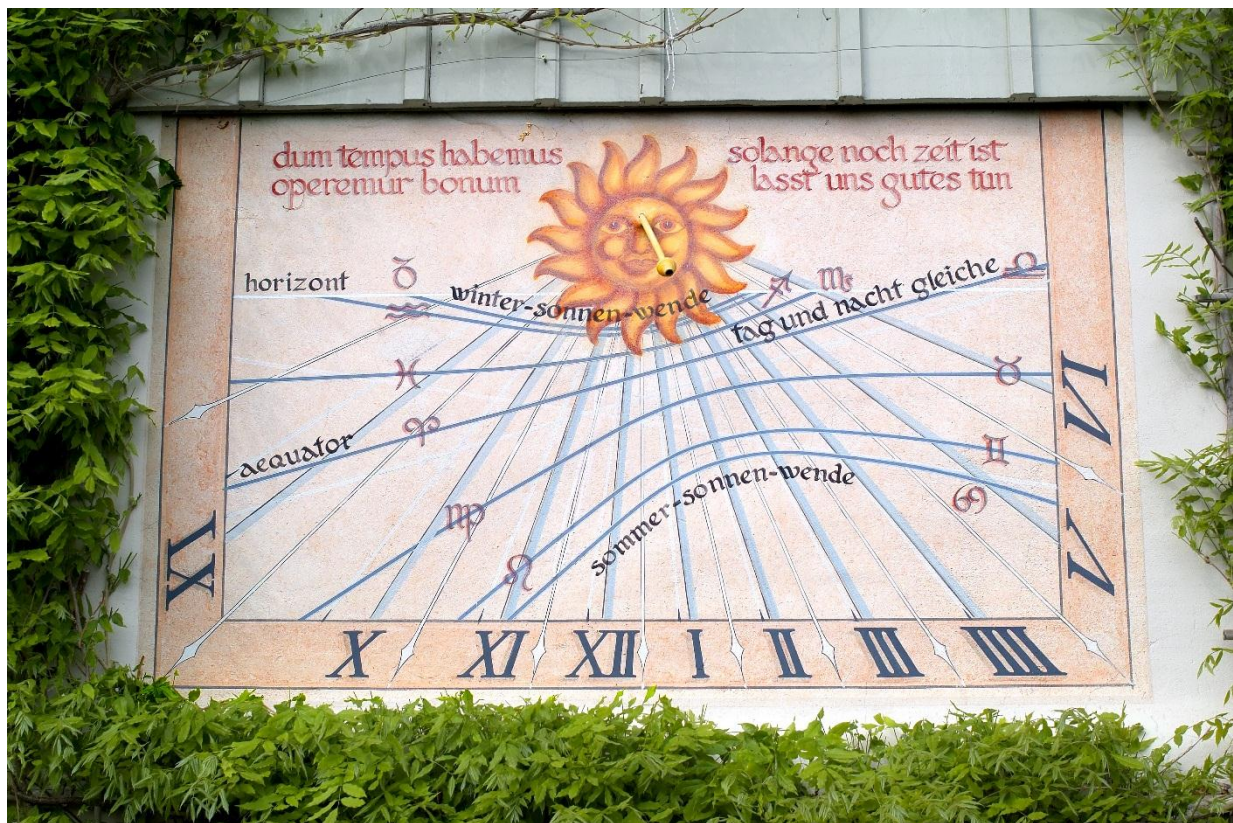 dum tempus habemus
operemur bonum
solange noch zeit ist
lasst uns gutes tun
horizont
winter-sonnen-wende
tag und nacht gleiche
aequator
sommer-sonnen-wende
IX
X
XI
XII
I
II
III
IIII
V
VI